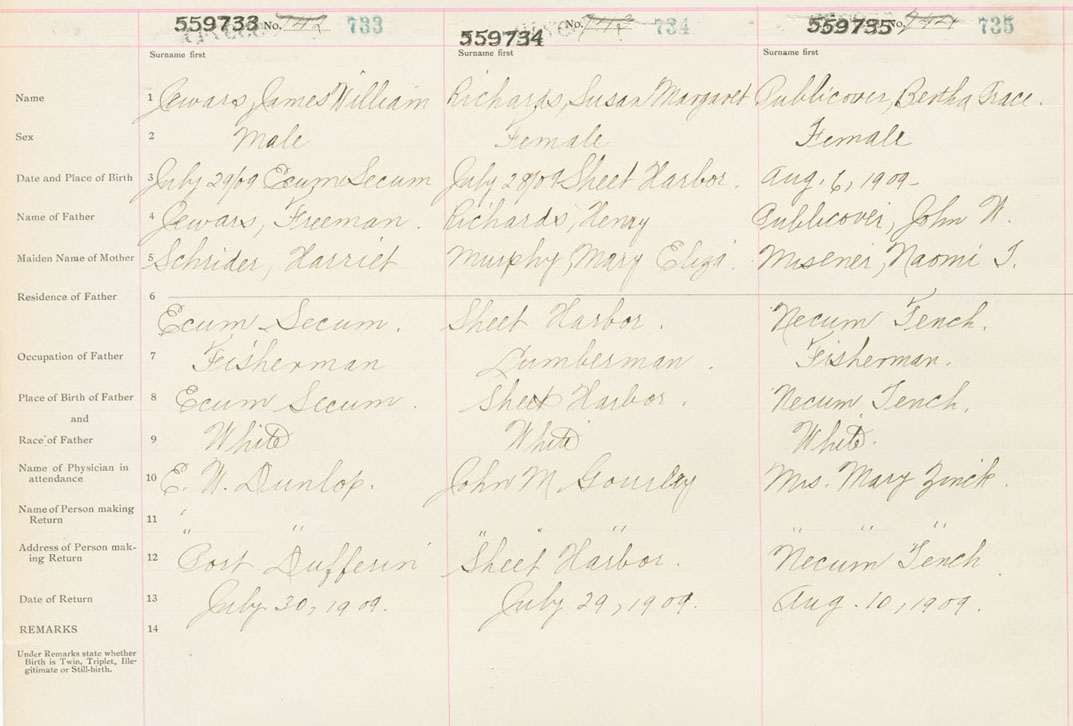 559733 No. 742 733 559734 No. 743 734 559735 744 735
Surname first Surname first Surname first
Name 1 Jewars, James William Richards, Susan Margaret Publicover, Bertha Grace.
Sex 2 Male Female Female
Date and Place of Birth 3 July 29/09 Ecum Secum July 28/09 Sheet Harbor. Aug. 6, 1909-
Name of Father 4 Jewars, Freeman. Richards, Henry Publicover, John W.
Maiden Name of Mother 5 Schrider, Harriet Murphy, Mary Eliza. Misener, Naomi J.
Residence of Father 6 Ecum Secum. Sheet Harbor. Necum Tench.
Occupation of Father 7 Fisherman Lumberman. Fisherman.
Place of Birth of Father 8 Ecum Secum. Sheet Harbor. Necum Tench.
and
Race of Father 9 White White White.
Name of Physician in
attendance 10 E. W. Dunlop. John M Gourley Mrs. Mary Zinck.
Name of Person making
Return 11 " " " " " " " "
Address of Person mak-
ing Return 12 Port Dufferin Sheet Harbor. Necum Tench
Date of Return 13 July 30, 1909. July 29, 1909. Aug. 10, 1909.
REMARKS 14
Under Remarks state whether
Birth is Twin, Triplet, Ille-
gitimate or Still-birth.